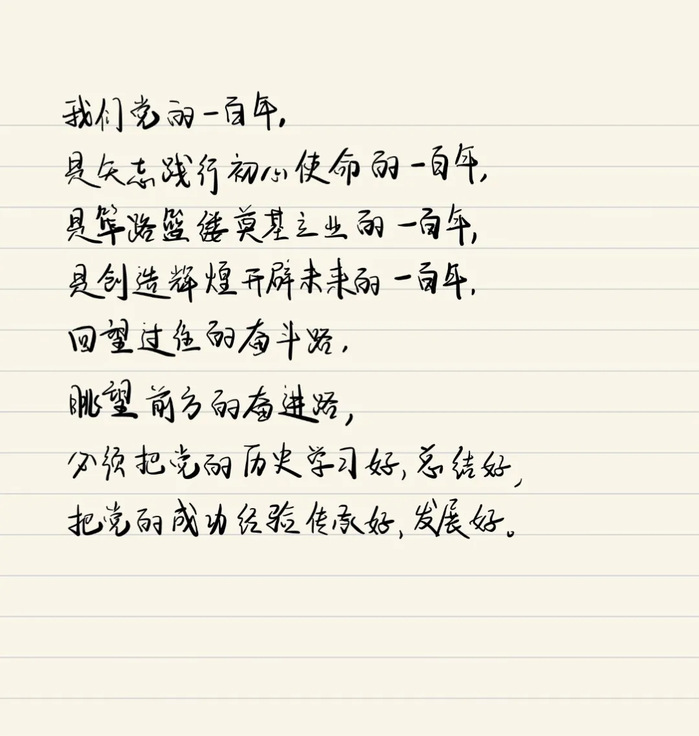 我们党的一百年,
是矢志践行初心使命的一百年,
是筚路蓝缕奠基立业的一百年,
是创造辉煌开辟未来的一百年.
回望过往的奋斗路,
眺望前方的奋进路,
必须把党的历史学习好,总结好,
把党的成功经验传承好,发展好。